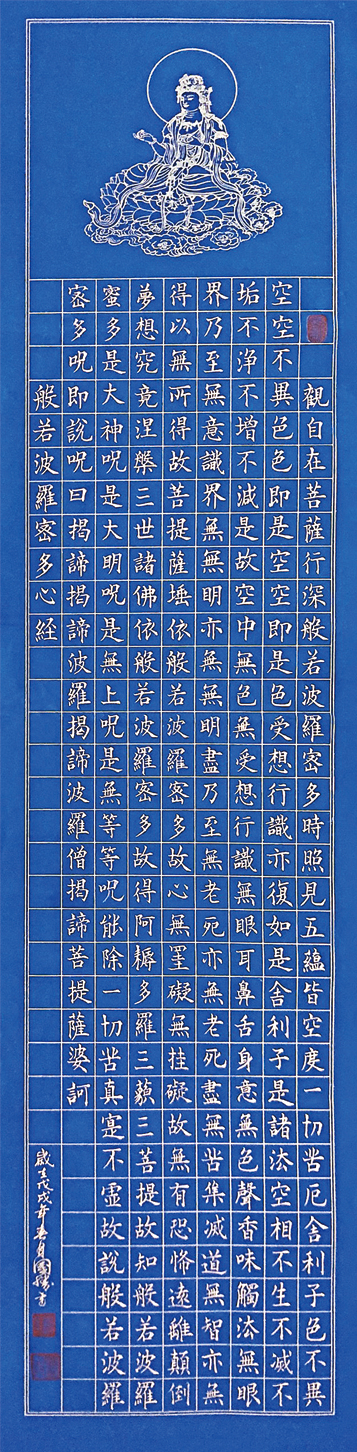 觀自在菩薩行深般若波羅密多時照見五蘊皆空度一切苦厄舍利子色不異
空空不異色色即是空空即是色受想行識亦復如是舍利子是諸法空相不生不滅不
垢不浄不增不減是故空中無色無受想行識無眼耳鼻舌身意無色聲香味觸法無眼
界乃至無意識界無無明亦無無明盡乃至無老死亦無老死盡無苦集滅道無智亦無
得以無所得故菩提薩埵依般若波羅密多故心無罣礙無挂礙故無有恐怖遠離顛倒
夢想究竟涅槃三世諸佛依般若波羅密多故得阿耨多羅三藐三菩提故知般若波羅
蜜多是大神呪是大明呪是無上呪是無等等呪能除一切苦真寔不虛故說般若波羅
密多呪即說呪曰揭諦揭諦波羅揭諦波羅僧揭諦菩提薩婆訶
般若波羅密多心経
歲戊年月國書